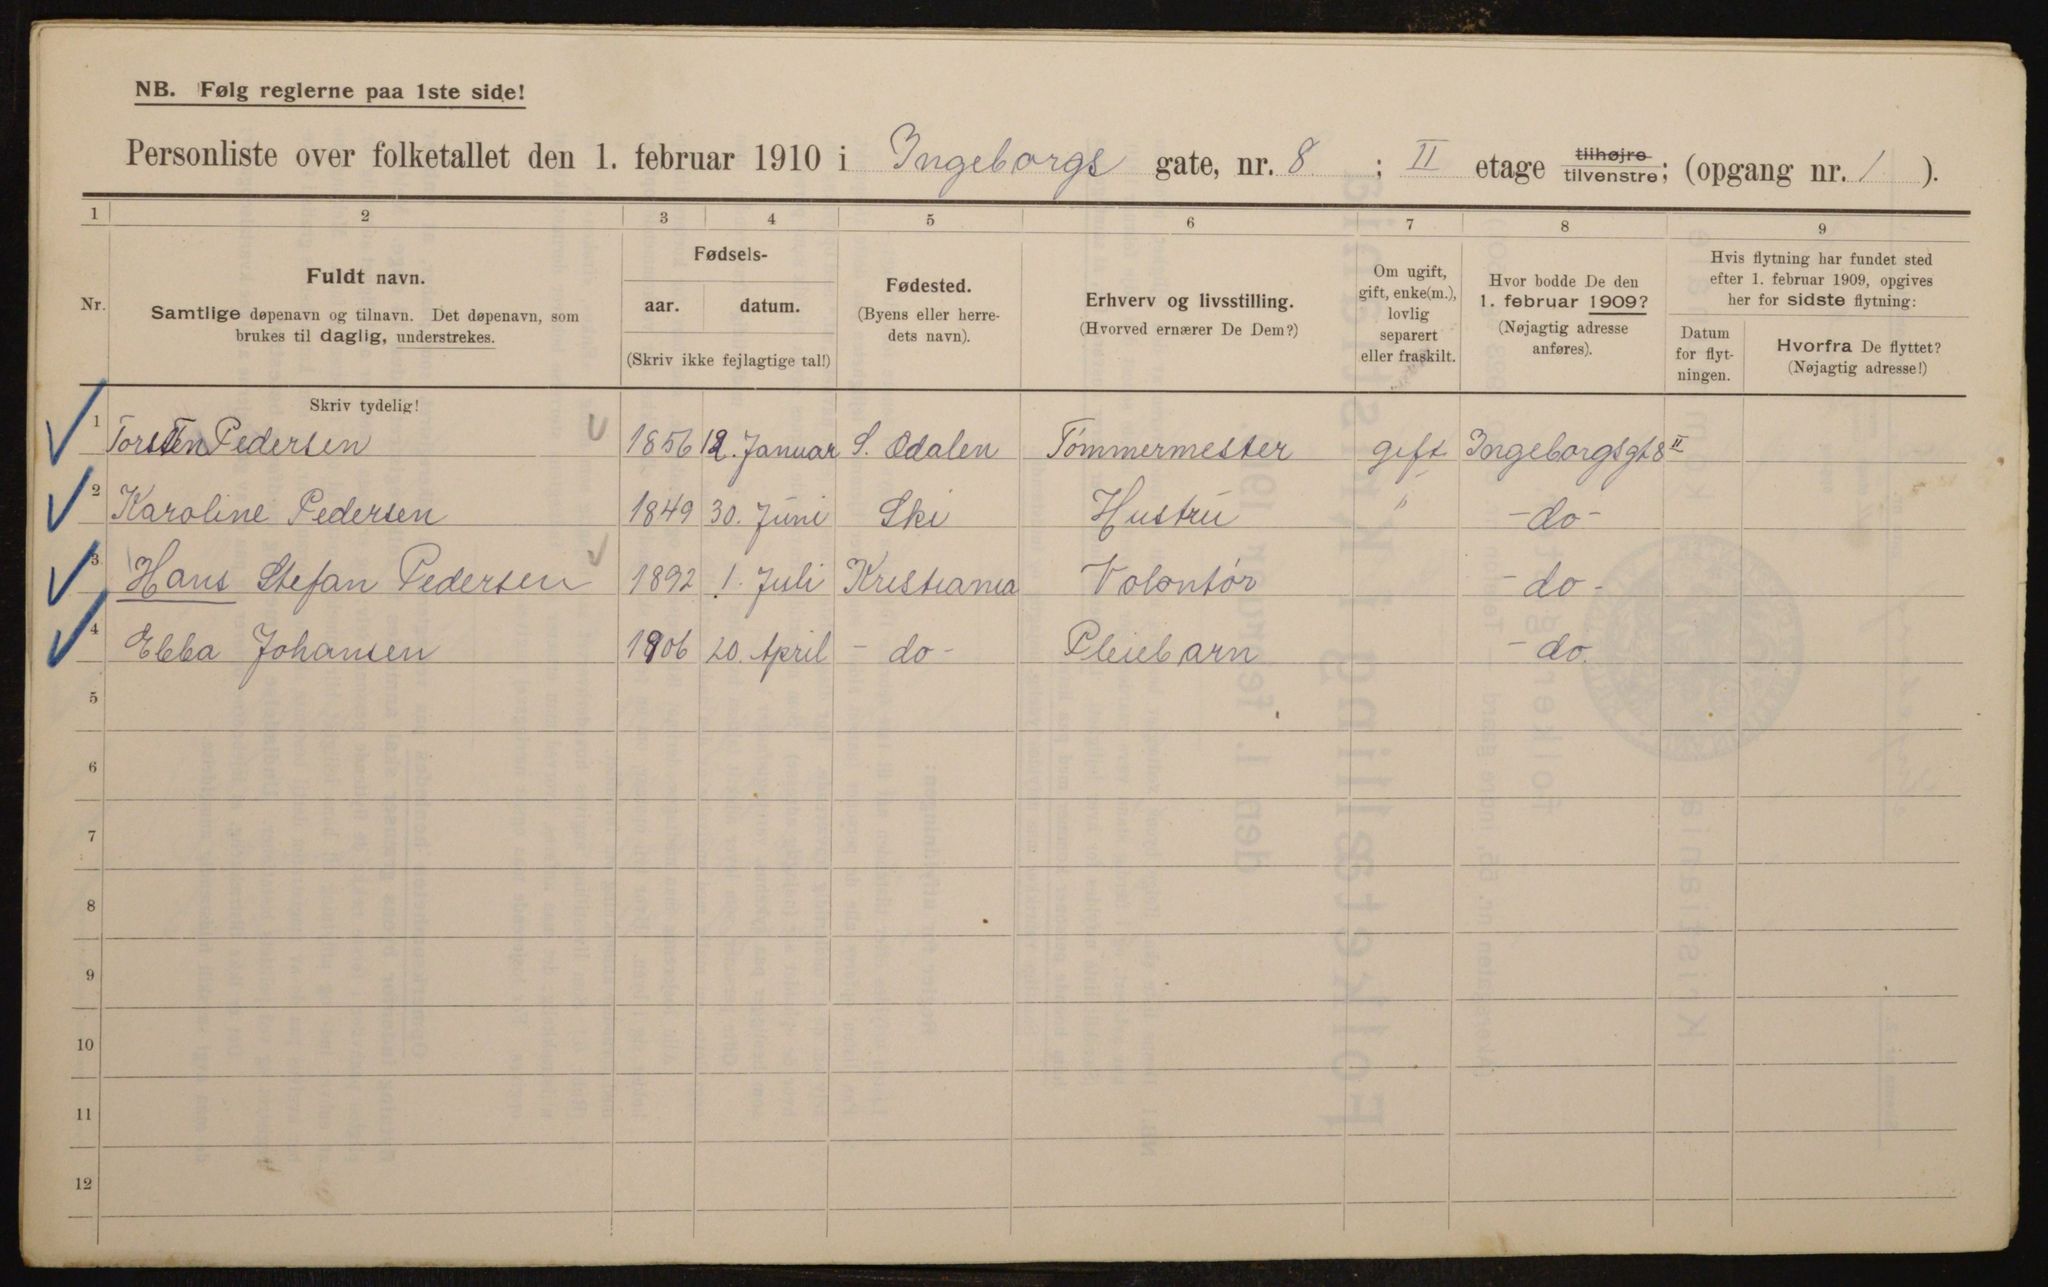 NB. Følg reglerne paa 1ste side!
Personliste over folketallet den 1. februar 1910 i Ingeborgs gate, nr. 8 ; II etage tilhøjre tilvenstre; (opgang nr. 1 ).
1 2 3 4 5 6 7 8 9
Nr.
Fuldt navn.
Samtlige døpenavn og tilnavn. Det døpenavn, som
brukes til daglig, understrekes.
Fødsels-
aar. datum.
(Skriv ikke fejlagtige tal!)
Fødested.
(Byens eller herre-
dets navn).
Erhverv og livsstilling.
(Hvorved ernærer De Dem?)
Om ugift,
gift, enke(m.),
lovlig
separert
eller fraskilt.
Hvor bodde De den
1. februar 1909?
(Nøjagtig adresse
anføres).
Hvis flytning har fundet sted
efter 1. februar 1909, opgives
her for sidste flytning:
Datum
for flyt-
ningen.
Hvorfra De flyttet?
(Nøjagtig adresse!)
Skriv tydelig!
1 Torsten Pedersen 1856 Januar S. Odalen Tömmermester gift Ingeborgsgt 8 II
2 Karoline Pedersen 1849 30. Juni Ski Hustru " -do-
3 Hans Stefan Pedersen 1892 1. Juli Kristiania Volontör -do-
4 Ebba Johansen 1906 20. April -do- Pleiebarn -do.
5
6
7
8
9
10
11
12